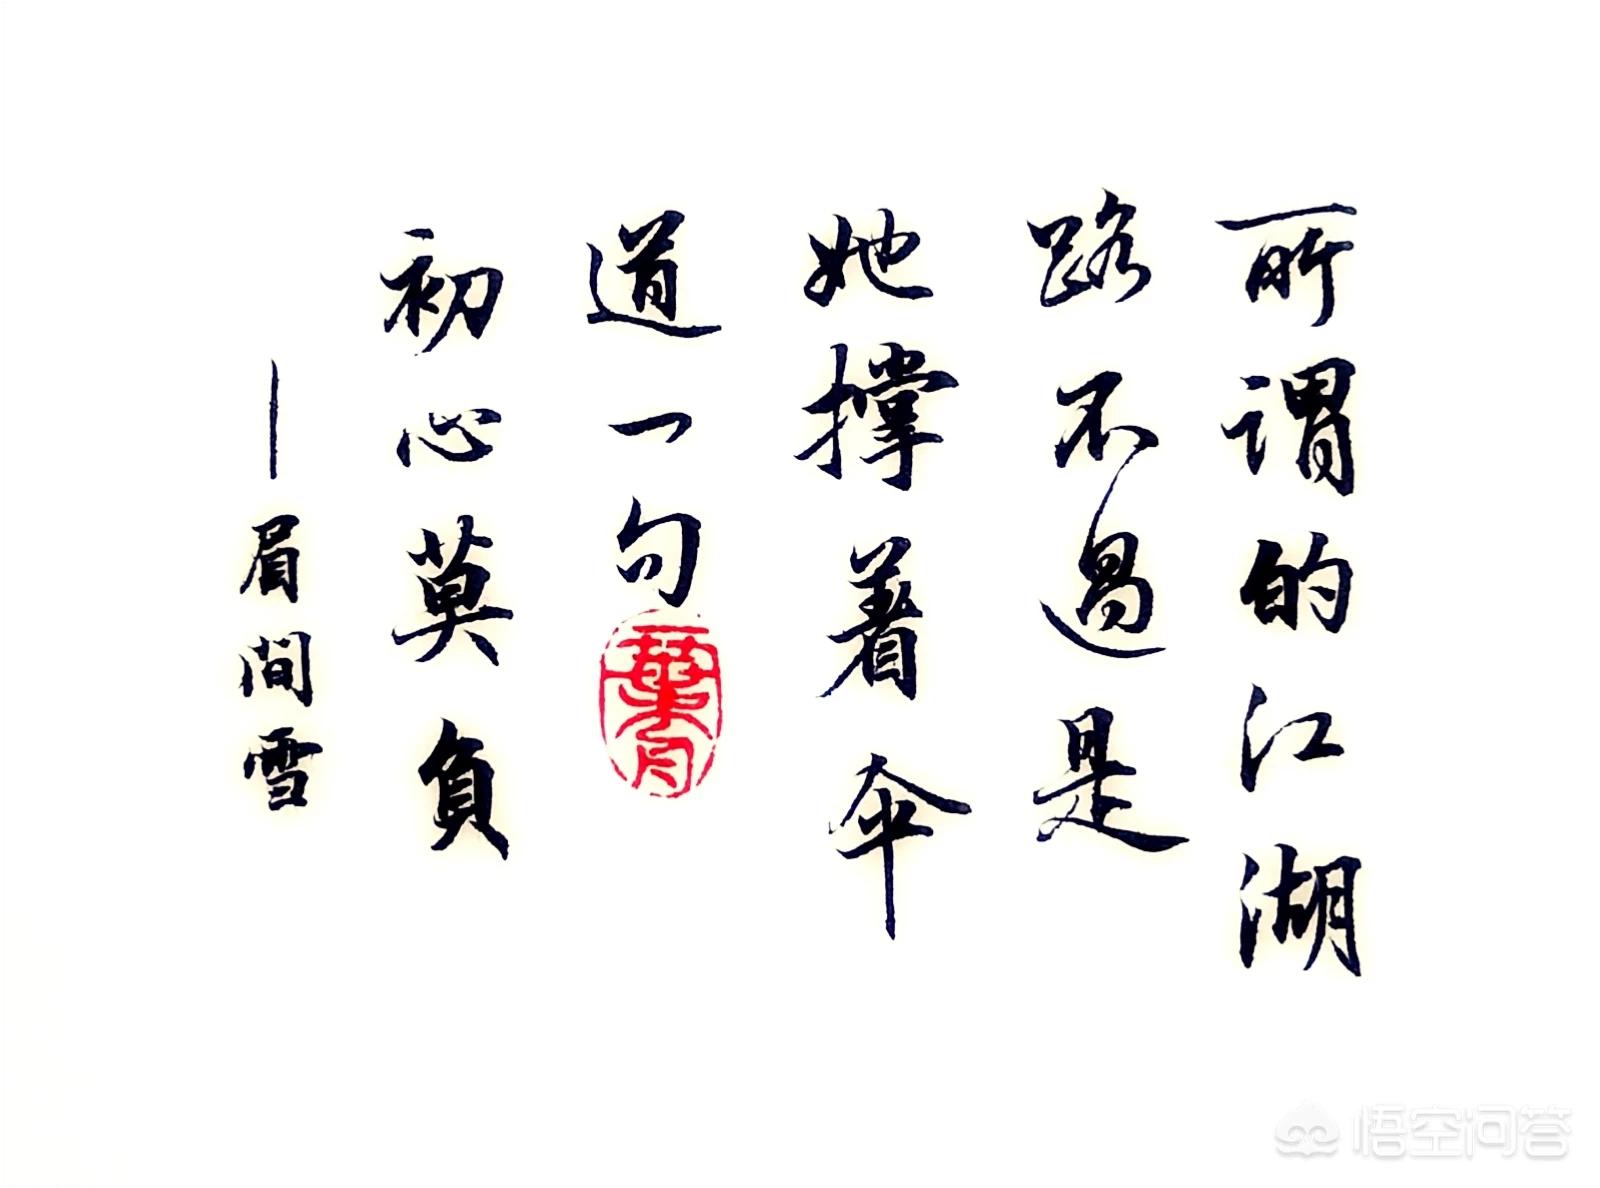 所谓的江湖
路不过是
她撑着伞
道一句
初心莫负
—眉间雪
悟空问答